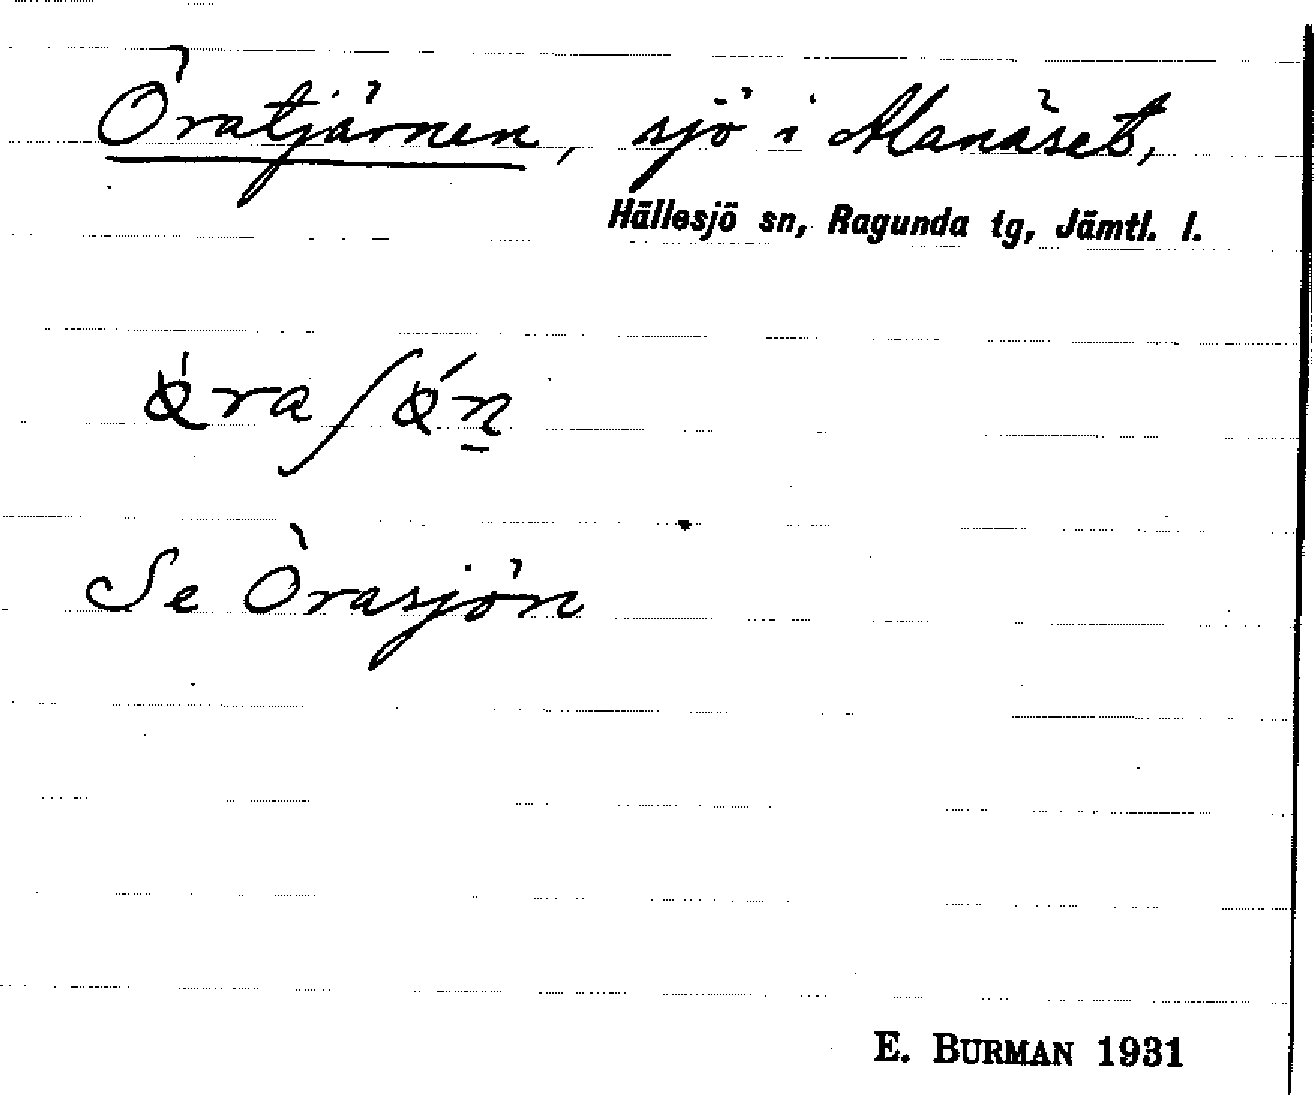 Öratjärnen, sjö i Manäset,
Hällesjö sn, Ragunda tg, Jämtl. l.
Se Örasjön
E. BURMAN 1931